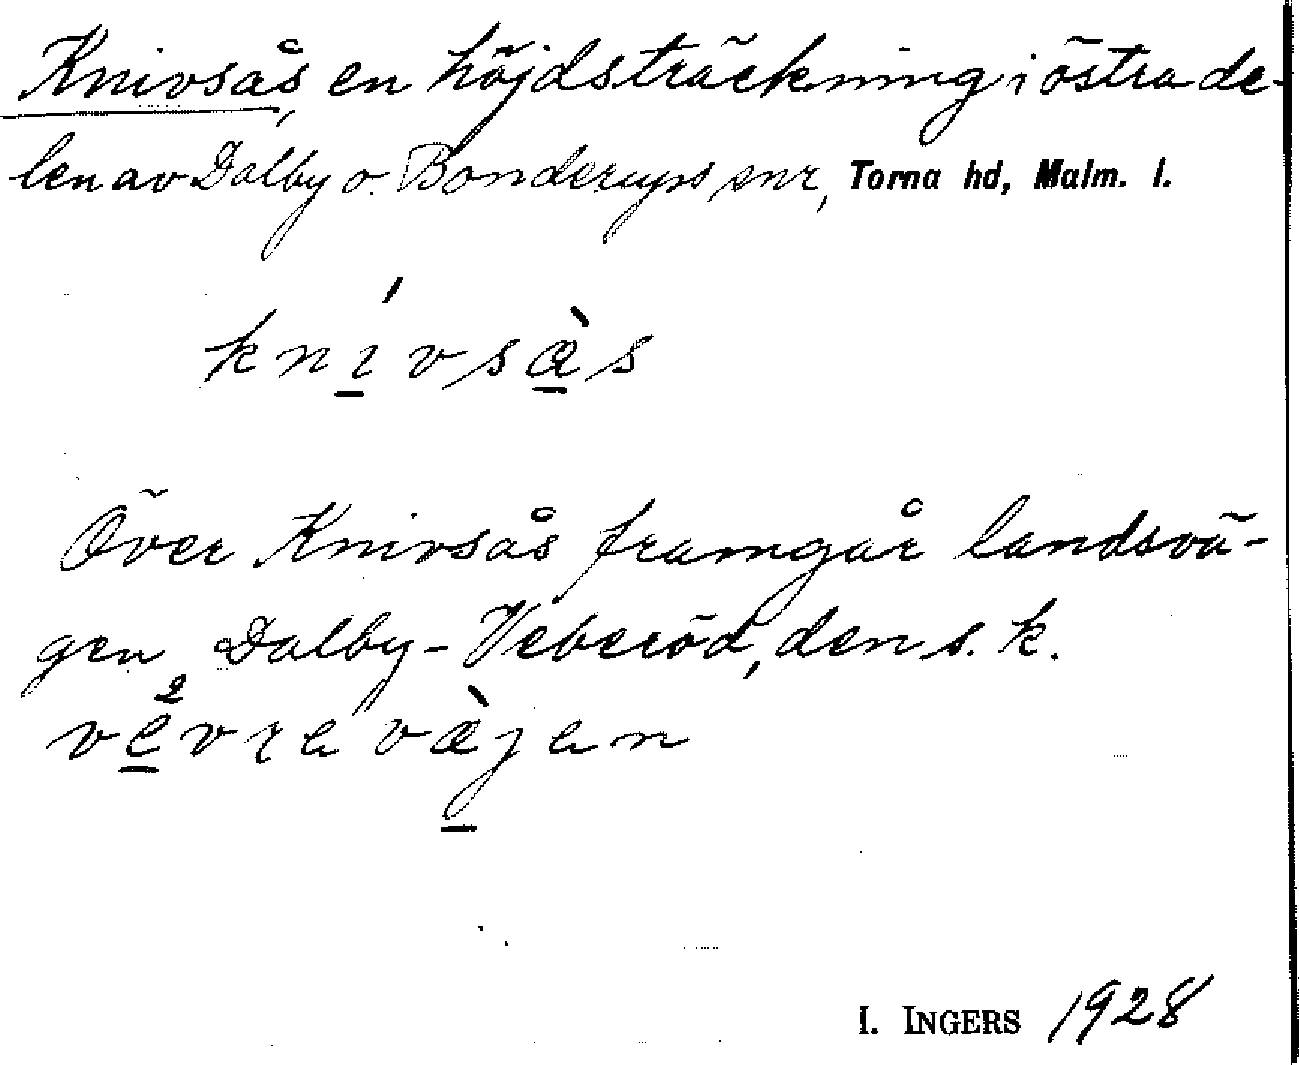 Knivsås, en höjdsträckning i östra de-
len av Dalby o. Bonderups snr, Torna hd, Malm. l.
knı́vsæ̀s
Över Knivsås framgår landsvä-
gen Dalby-Veberöd, den s. k.
vĕ̀vrevæ̀jen
I. INGERS 1928